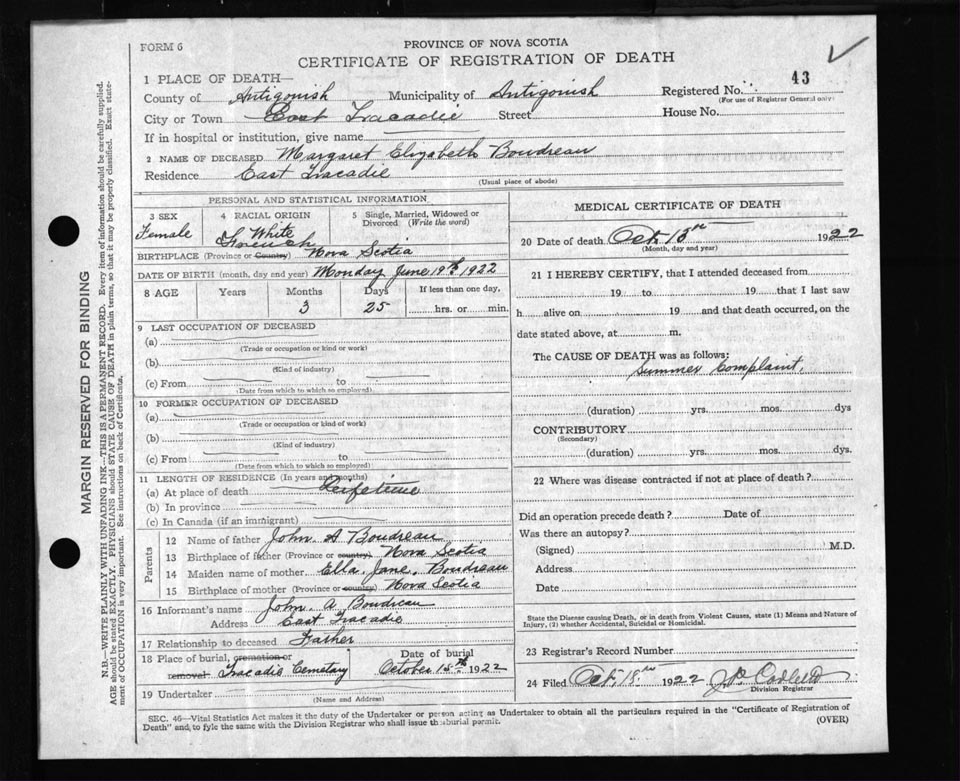 FORM 6
PROVINCE OF NOVA SCOTIA
CERTIFICATE OF REGISTRATION OF DEATH
43
1 PLACE OF DEATH—
County of Antigonish Municipality of Antigonish Registered No.
(For use of Registrar General only)
City or Town East Tracadie Street House No.
If in hospital or institution, give name
2 NAME OF DECEASED Margaret Elizabeth Boudreau
Residence East Tracadie
(Usual place of abode)
PERSONAL AND STATISTICAL INFORMATION
3 SEX 4 RACIAL ORIGIN 5 Single, Married, Widowed or Divorced (Write the word)
Female White French
BIRTHPLACE (Province or Country) Nova Scotia
DATE OF BIRTH (month, day and year) Monday June 19th 1922
8 AGE Years Months Days If less than one day,
3 25 hrs. or min.
9 LAST OCCUPATION OF DECEASED
(a)
(Trade or occupation or kind or work)
(b)
(Kind of industry)
(c) From to
(Date from which to which so employed)
10 FORMER OCCUPATION OF DECEASED
(a)
(Trade or occupation or kind of work)
(b)
(Kind of industry)
(c) From to
(Date from which to which so employed)
11 LENGTH OF RESIDENCE (In years and months)
(a) At place of death Lifetime
(b) In province
(c) In Canada (if an immigrant)
Parents
12 Name of father John A Boudreau
13 Birthplace of father (Province or country) Nova Scotia
14 Maiden name of mother Ella Jane Boudreau
15 Birthplace of mother (Province or country) Nova Scotia
16 Informant's name John A Boudreau
Address East Tracadie
17 Relationship to deceased Father
18 Place of burial, cremation or removal Tracadie Cemetary Date of burial October 15th 1922
19 Undertaker
(Name and Address)
MEDICAL CERTIFICATE OF DEATH
20 Date of death Oct 13th 1922
(Month, day and year)
21 I HEREBY CERTIFY, that I attended deceased from
19 to 19 that I last saw
h alive on 19 and that death occurred, on the
date stated above, at m.
The CAUSE OF DEATH was as follows:
Summer Complaint,
(duration) yrs. mos. dys
CONTRIBUTORY
(Secondary)
(duration) yrs. mos. dys.
22 Where was disease contracted if not at place of death?
Did an operation precede death? Date of
Was there an autopsy?
(Signed) M.D.
Address
Date
State the Disease causing Death, or in death from Violent Causes, state (1) Means and Nature of
Injury, (2) whether Accidental, Suicidal or Homicidal.
23 Registrar's Record Number
24 Filed Oct, 18th 1922
Division Registrar
SEC. 46—Vital Statistics Act makes it the duty of the Undertaker or person acting as Undertaker to obtain all the particulars required in the "Certificate of Registration of
Death" and to fyle the same with the Division Registrar who shall issue the burial permit.
(OVER)
MARGIN RESERVED FOR BINDING
N.B.—WRITE PLAINLY WITH UNFADING INK—THIS IS A PERMANENT RECORD. Every item of information should be carefully supplied.
AGE should be stated EXACTLY. PHYSICIANS should STATE CAUSE OF DEATH in plain terms, so that it may be properly classified. Exact state-
ment of OCCUPATION is very important. See instructions on back of Certificate.